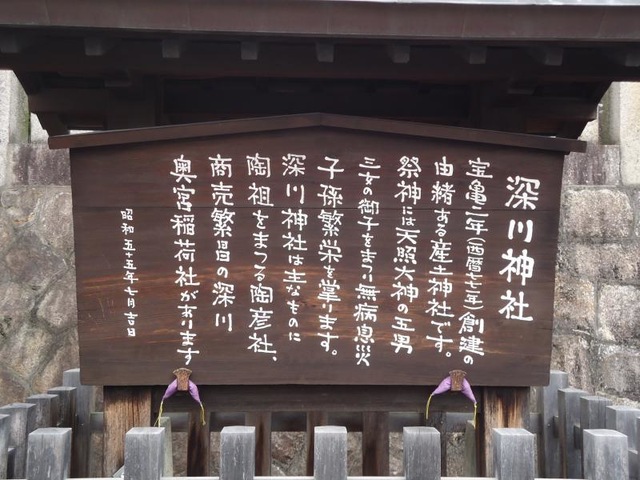 深川神社
宝亀二年(西暦七七一年)創建の
由緒ある産土神社です。
祭神には天照大神の五男
三女の御子をまつり無病息災
子孫繁栄を掌ります。
深川神社は主なものに
陶祖をまつる陶彦社、
商売繁昌の深川
奥宮稲荷社があります
昭和五十五年七月吉日